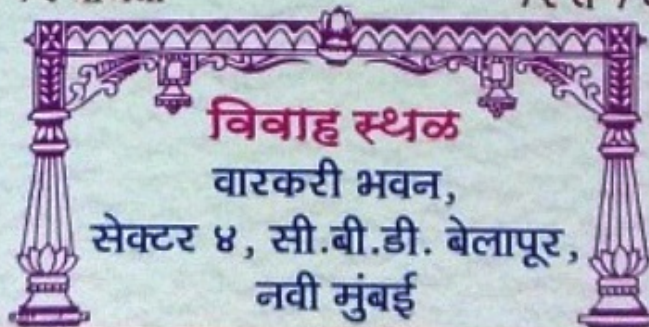 विवाह स्थळ
वारकरी भवन,
सेक्टर ४, सी.बी.डी. बेलापूर,
नवी मुंबई